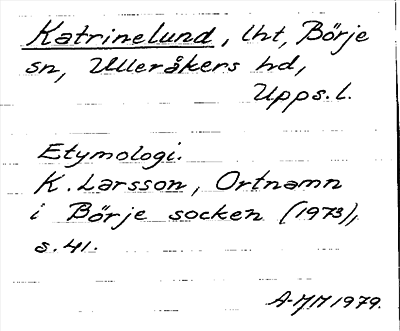 Katrinelund, lht, Börje
sn, Ulleråkers hd,
Upps. l.
Etymologi.
K. Larsson, Ortnamn
i Börje socken (1973),
s. 41.
A-MM 1979.